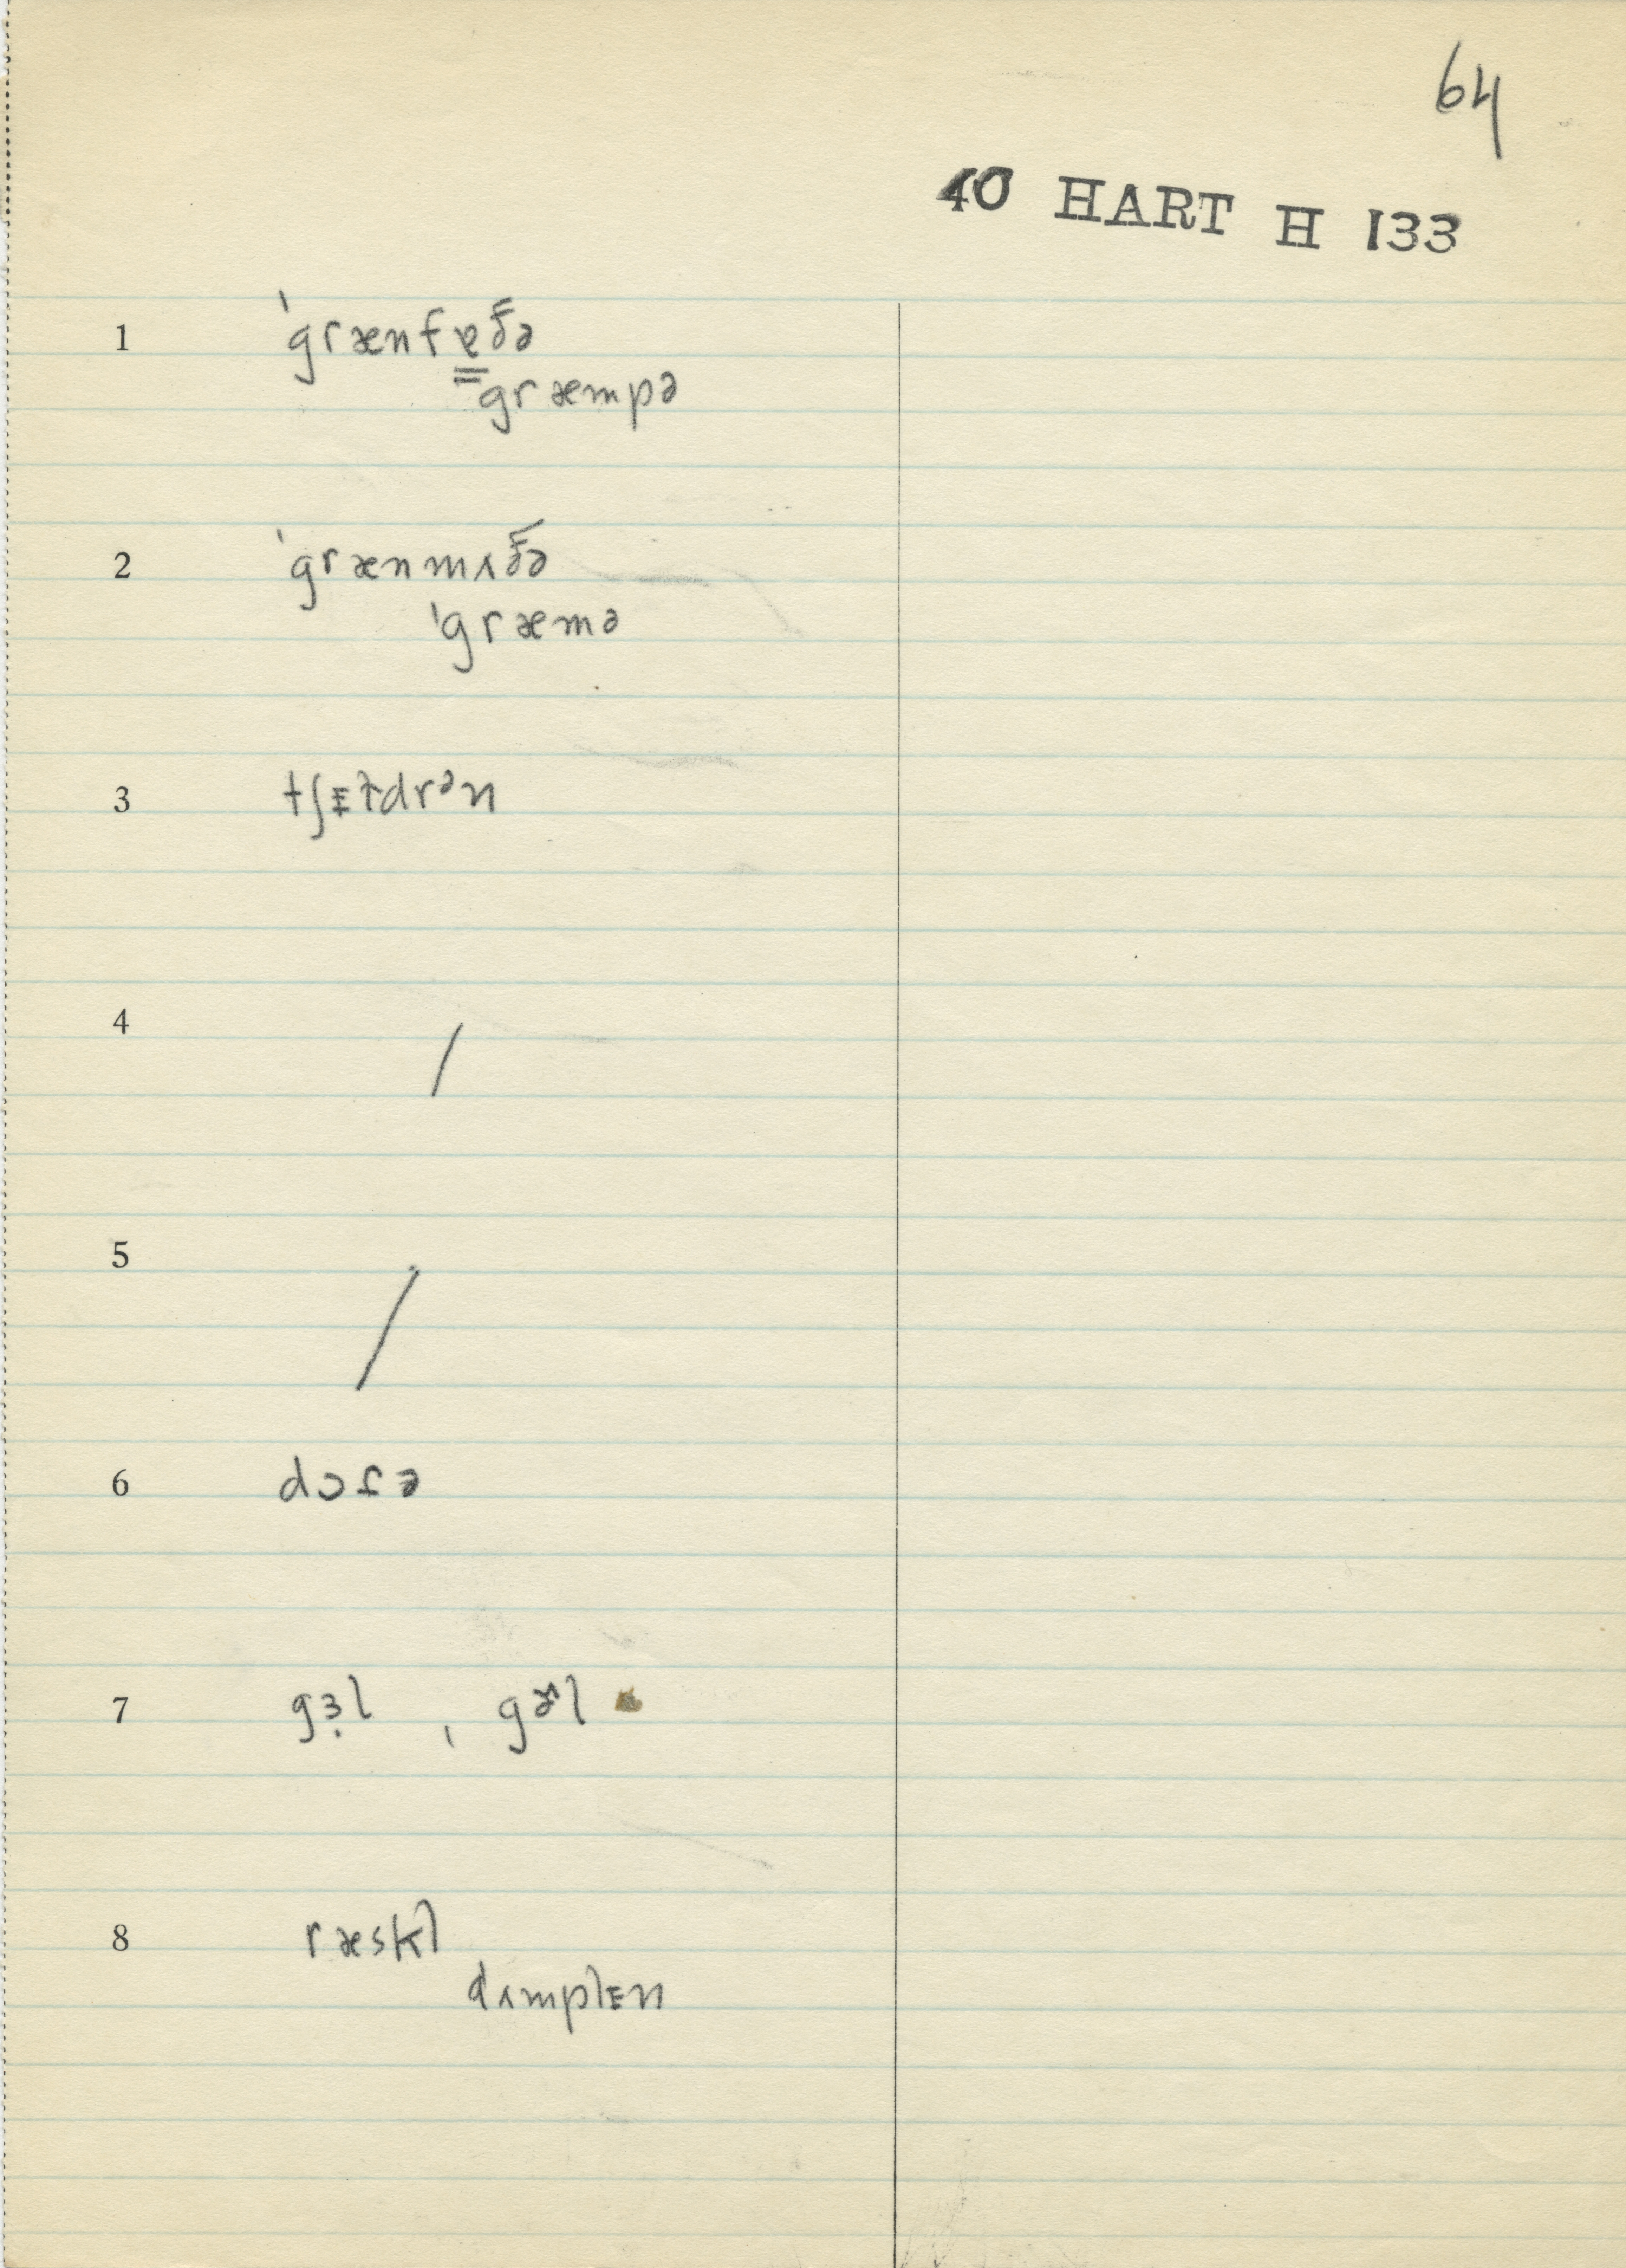 64
40 HART H 133
1 ˈgrænfɐðə
græmpə
2 ˈgrænmʌðə
ˈgræmə
3 tʃɪldrᵊn
4 /
5 /
6 dɔɾə
7 gɜ̣l , gɚl
8 ræskl
dʌmplɪn